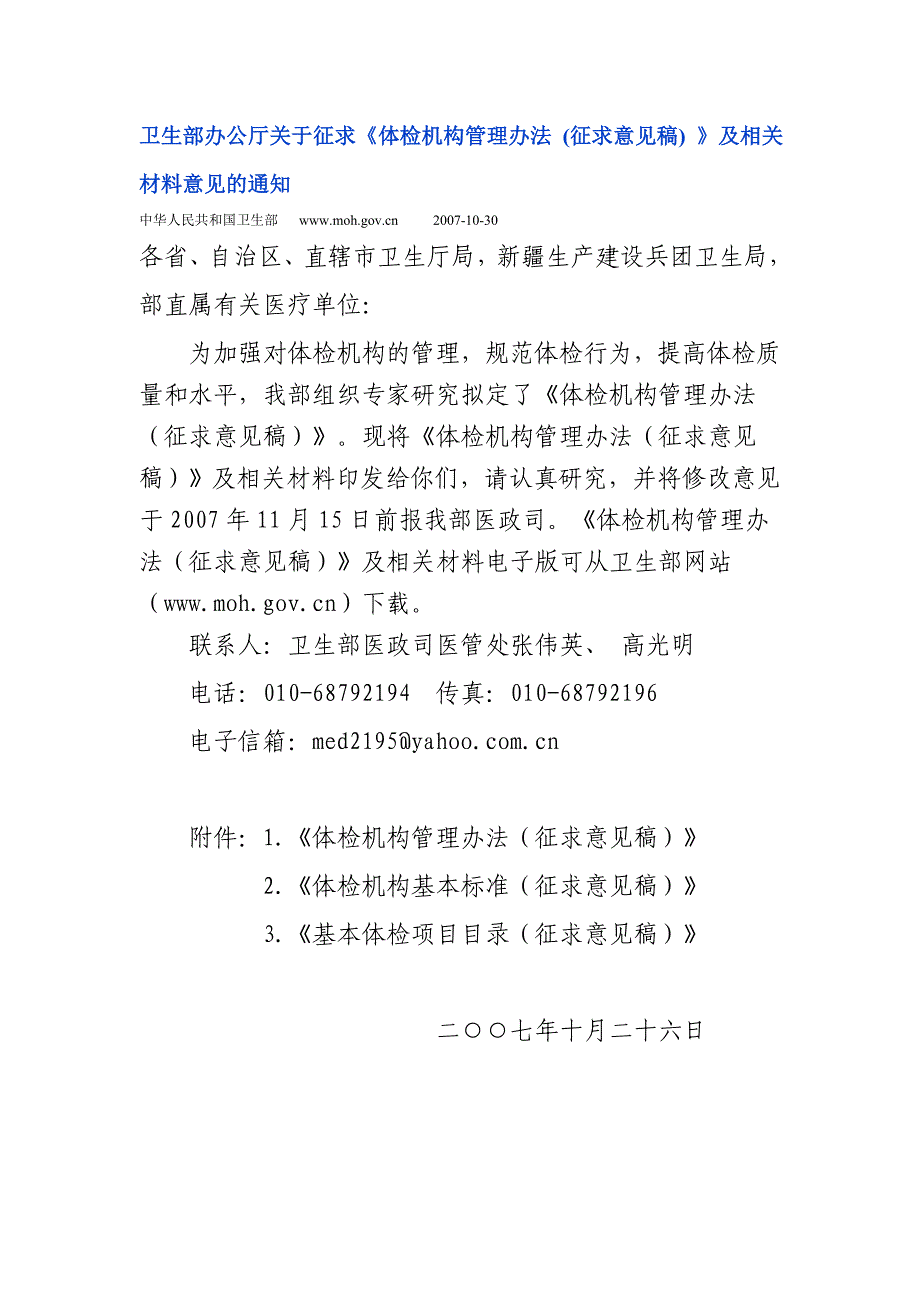 卫生部办公厅关于征求《体检机构管理办法 (征求意见稿) 》及相关
材料意见的通知
中华人民共和国卫生部 www.moh.gov.cn 2007-10-30
各省、自治区、直辖市卫生厅局，新疆生产建设兵团卫生局，
部直属有关医疗单位：
为加强对体检机构的管理，规范体检行为，提高体检质
量和水平，我部组织专家研究拟定了《体检机构管理办法
（征求意见稿）》。现将《体检机构管理办法（征求意见
稿）》及相关材料印发给你们，请认真研究，并将修改意见
于 2007 年 11 月 15 日前报我部医政司。《体检机构管理办
法（征求意见稿）》及相关材料电子版可从卫生部网站
（www.moh.gov.cn）下载。
联系人：卫生部医政司医管处张伟英、 高光明
电话：010-68792194 传真：010-68792196
电子信箱：med2195@yahoo.com.cn
附件：1.《体检机构管理办法（征求意见稿）》
2.《体检机构基本标准（征求意见稿）》
3.《基本体检项目目录（征求意见稿）》
二○○七年十月二十六日